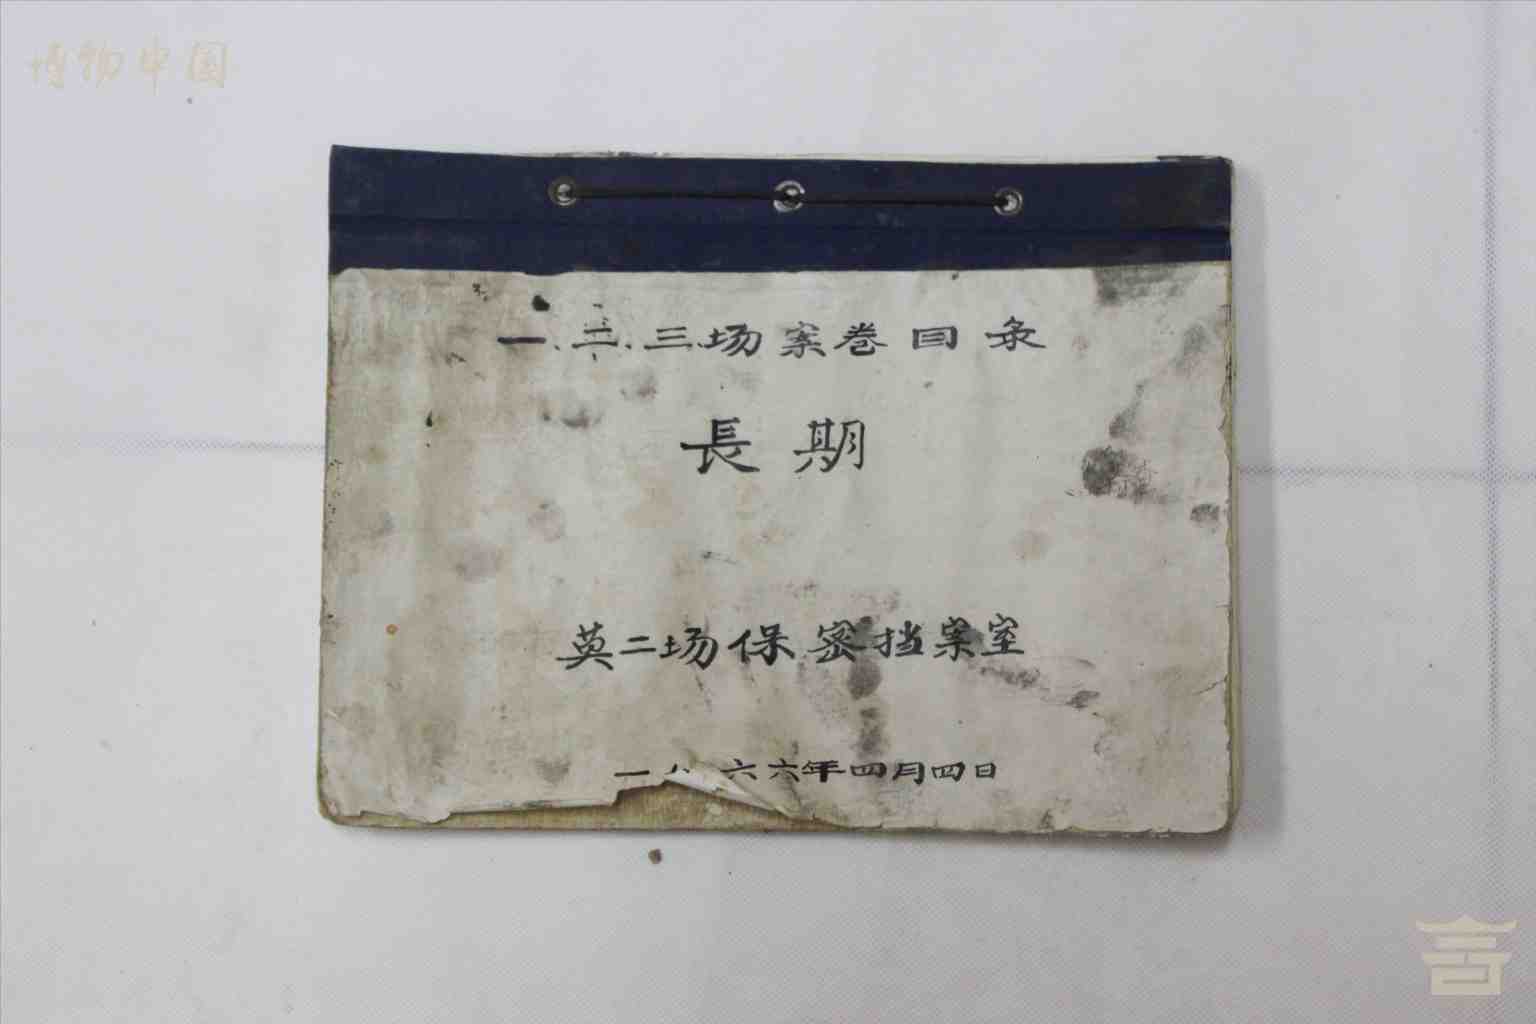 博物中国
一.二.三场案卷目录
長期
英二场保密挡案室
一 六六年四月四日